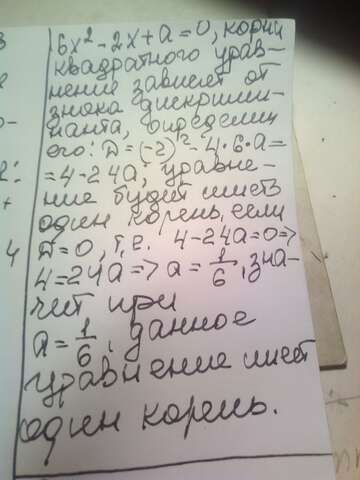 6x² - 2x + a = 0, корни
квадратного урав-
нение зависит от
знака дискрими-
нанта, определим
его: D = (-2)² - 4·6·a =
= 4 - 24a, уравне-
ние будет иметь
один корень, если
D = 0, т.е. 4 - 24a = 0 =>
4 = 24a => a = 1/6, зна-
чит при
a = 1/6, данное
уравнение имеет
один корень.
4